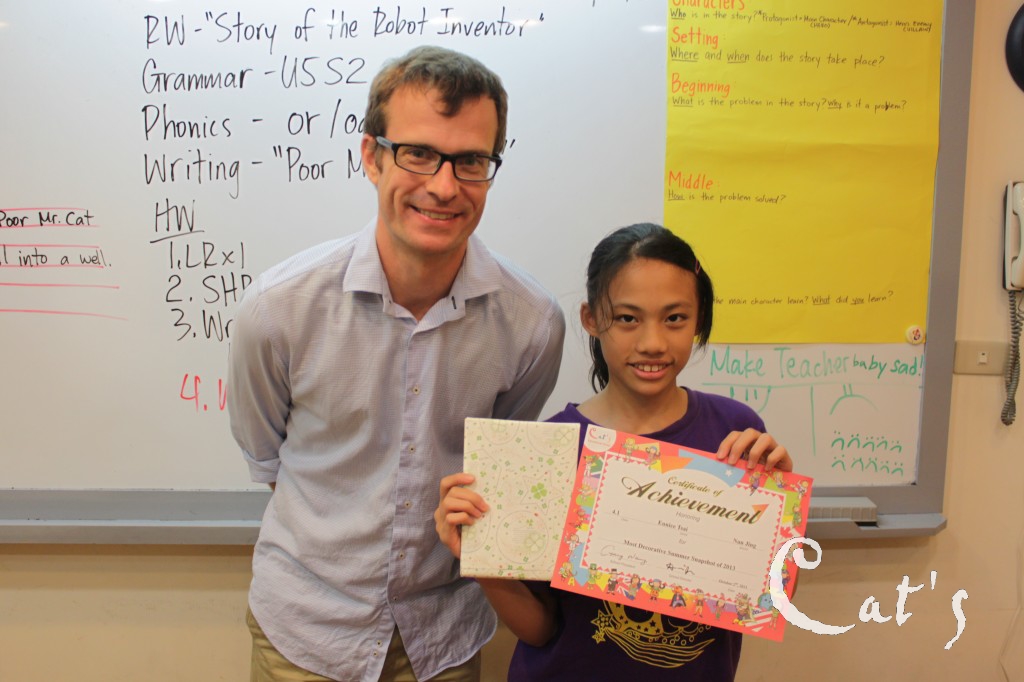 RW - "Story of the Robot Inventor"
Grammar - U5 S2
Phonics - or/oa
Writing - "Poor M
HW
1. LRx1
2. SHP
3. Wr
4. W
Poor Mr. Cat
l into a well.
Characters
Who is in the story? *Protagonist = Main Character / *Antagonist:
Setting:
Where and when does the story take place?
Beginning
What is the problem in the story? Why is it a problem?
Middle
How is the problem solved?
the main character learn? What did you learn?
Make Teacher baby sad!
Cat's
Certificate of
Achievement
Honoring
Eunice Tsai
Nan Jing
For
Most Decorative Summer Snapshot of 2013
Cat's